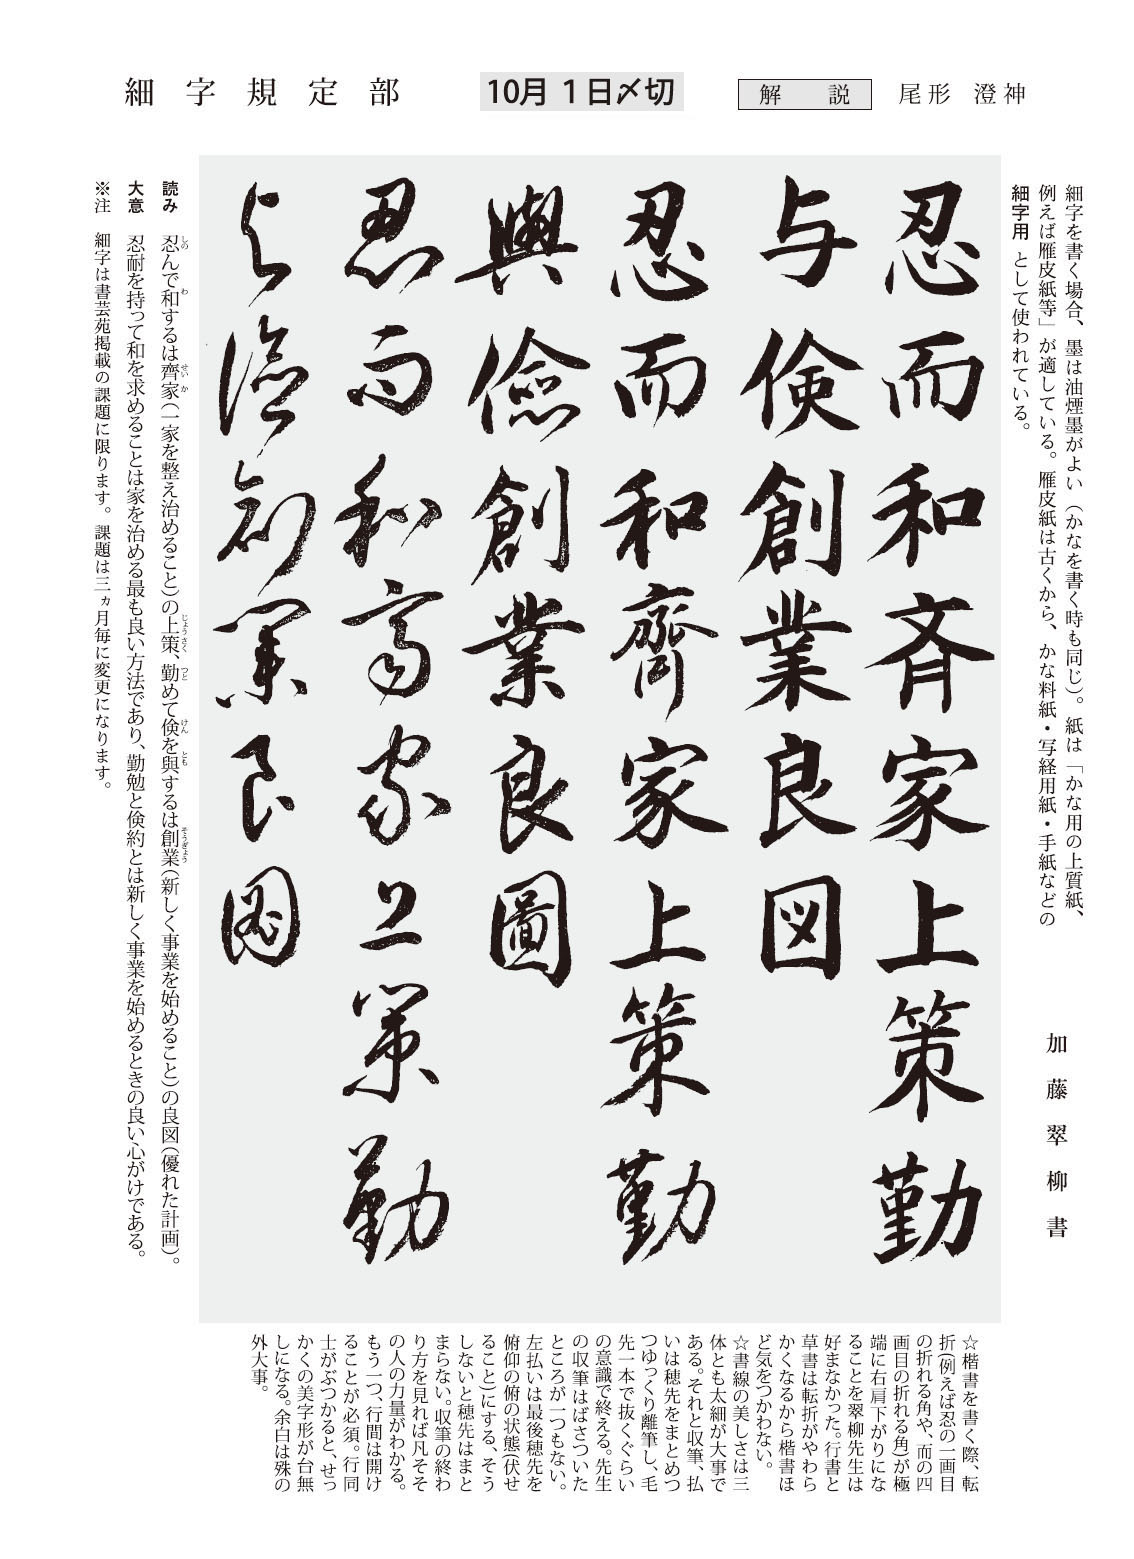 細字規定部
10月1日〆切
解説
尾形 澄神
細字を書く場合、墨は油煙墨がよい（かなを書く時も同じ）。紙は「かな用の上質紙、
例えば雁皮紙等」が適している。雁皮紙は古くから、かな料紙・写経用紙・手紙などの
細字用 として使われている。
加藤翠柳書
忍而和斉家上策勤
与倹創業良図
忍而和齊家上策勤
與儉創業良圖
忍而和齊家上策勤
与儉創業良圖
読み 忍んで和するは齊家（一家を整え治めること）の上策、勤めて倹を與するは創業（新しく事業を始めること）の良図（優れた計画）。
しの わ せいか じょうさく つと けん とも そうぎょう
大意 忍耐を持って和を求めることは家を治める最も良い方法であり、勤勉と倹約とは新しく事業を始めるときの良い心がけである。
※注 細字は書芸苑掲載の課題に限ります。課題は三ヵ月毎に変更になります。
☆楷書を書く際、転
折（例えば忍の一画目
の折れる角や、而の四
画目の折れる角）が極
端に右肩下がりにな
ることを翠柳先生は
好まなかった。行書と
草書は転折がやわら
かくなるから楷書ほ
ど気をつかわない。
☆書線の美しさは三
体とも太細が大事で
ある。それと収筆、払
いは穂先をまとめつ
つゆっくり離筆し、毛
先一本で抜くぐらい
の意識で終える。先生
の収筆はばさついた
ところが一つもない。
左払いは最後穂先を
俯仰の俯の状態（伏せ
ること）にする、そう
しないと穂先はまと
まらない。収筆の終わ
り方を見れば凡そそ
の人の力量がわかる。
もう一つ、行間は開け
ることが必須。行同
士がぶつかると、せっ
かくの美字形が台無
しになる。余白は殊の
外大事。